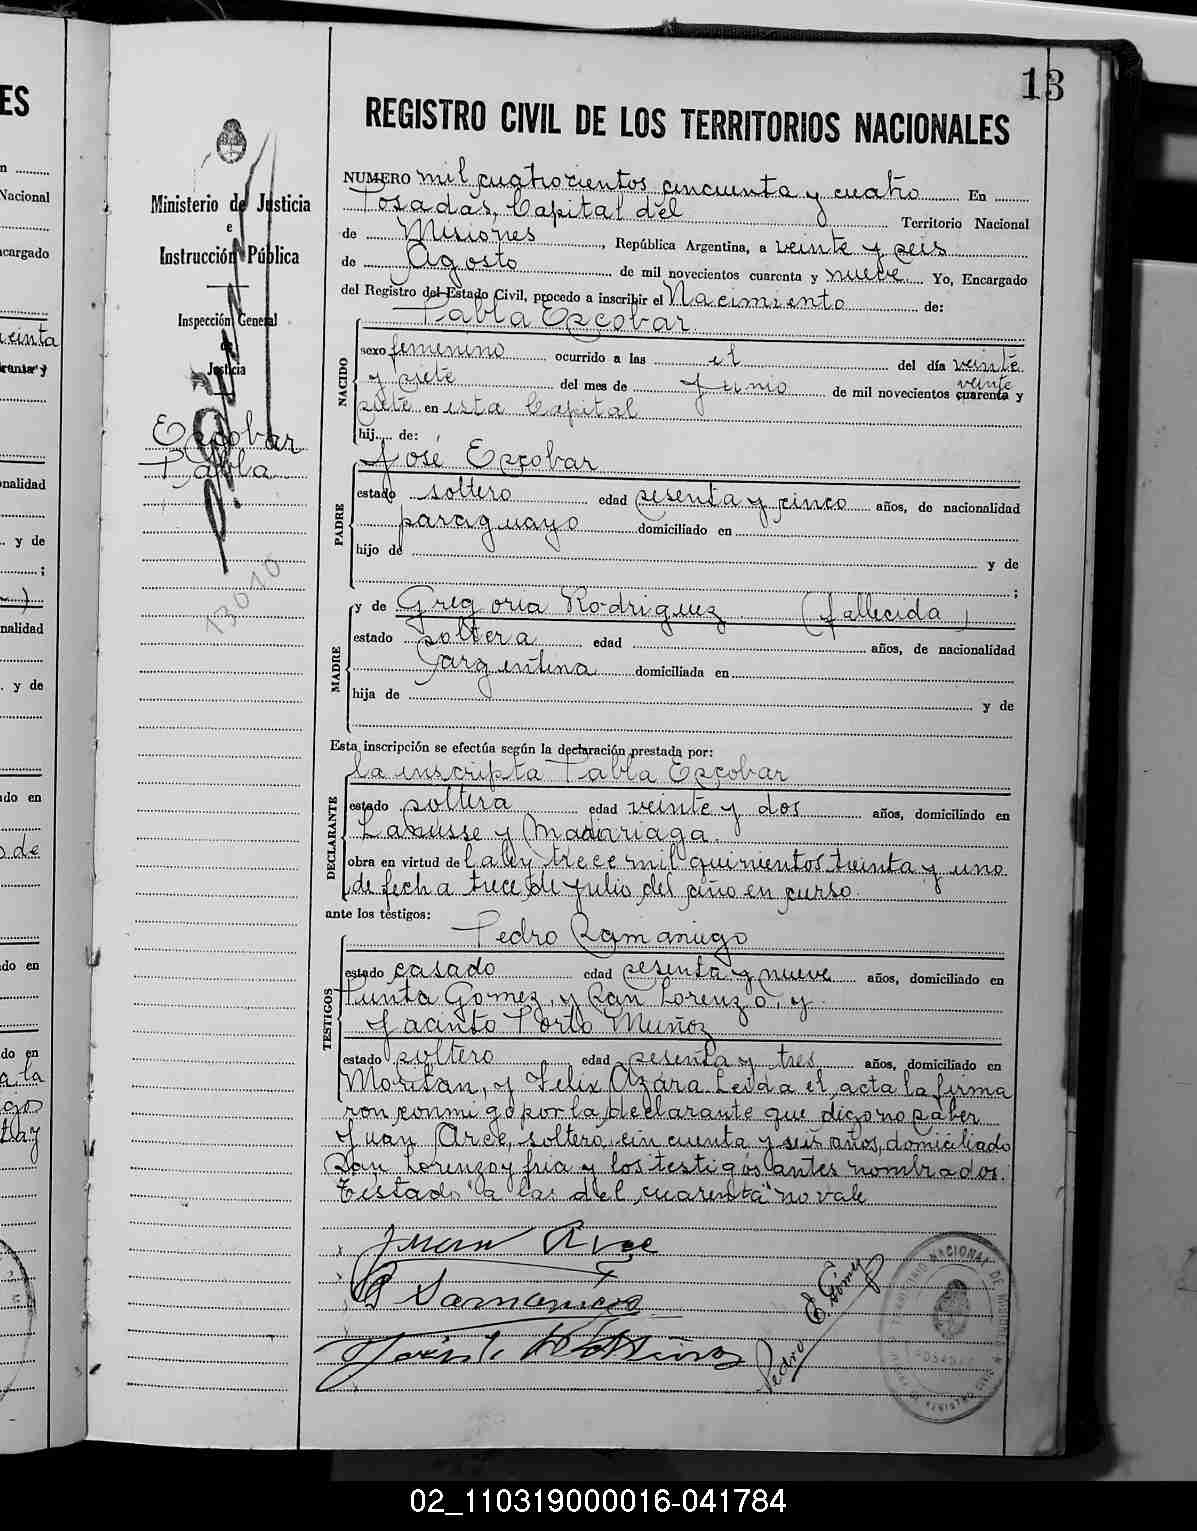 13
REGISTRO CIVIL DE LOS TERRITORIOS NACIONALES
Ministerio de Justicia
e
Instrucción Pública
Inspección General
de
Justicia
Escobar
Pabla
13010
NUMERO mil cuatrocientos cincuenta y cuatro En
Posadas, Capital del Territorio Nacional
de Misiones, República Argentina, a veinte y seis
de Agosto de mil novecientos cuarenta y nueve Yo, Encargado
del Registro del Estado Civil, procedo a inscribir el Nacimiento de:
Pabla Escobar
NACIDO
sexo femenino ocurrido a las el del día veinte
y siete del mes de Junio de mil novecientos cuarenta y
veinte
siete en esta Capital
hij.... de:
José Escobar
PADRE
estado soltero edad sesenta y cinco años, de nacionalidad
paraguayo domiciliado en
hijo de y de
;
y de Gregoria Rodriguez (fallecida)
MADRE
estado soltera edad años, de nacionalidad
argentina domiciliada en
hija de y de
Esta inscripción se efectúa según la declaración prestada por:
la inscripta Pabla Escobar
DECLARANTE
estado soltera edad veinte y dos años, domiciliado en
Lanusse y Madariaga.
obra en virtud de la ley trece mil quinientos treinta y uno
de fecha trece de Julio del año en curso.
ante los testigos:
Pedro Samaniego
TESTIGOS
estado casado edad sesenta y nueve años, domiciliado en
Punta Gomez, y San Lorenzo, y
Jacinto Porto Muñoz
estado soltero edad sesenta y tres años, domiciliado en
Moritan, y Felix Azara. Leida el acta la firma
ron conmigo por la declarante que dijo no saber
Juan Arce, soltero, cincuenta y seis años, domiciliado
San Lorenzo y fria y los testigos antes nombrados.
Testado "a las del cuarenta" no vale
Juan Arce
P Samaniego
Pedro E. Gómez
POSADAS
ES
Nacional
cargado
nalidad
y de
;
nalidad
y de
do en
do en
do en
02_110319000016-041784